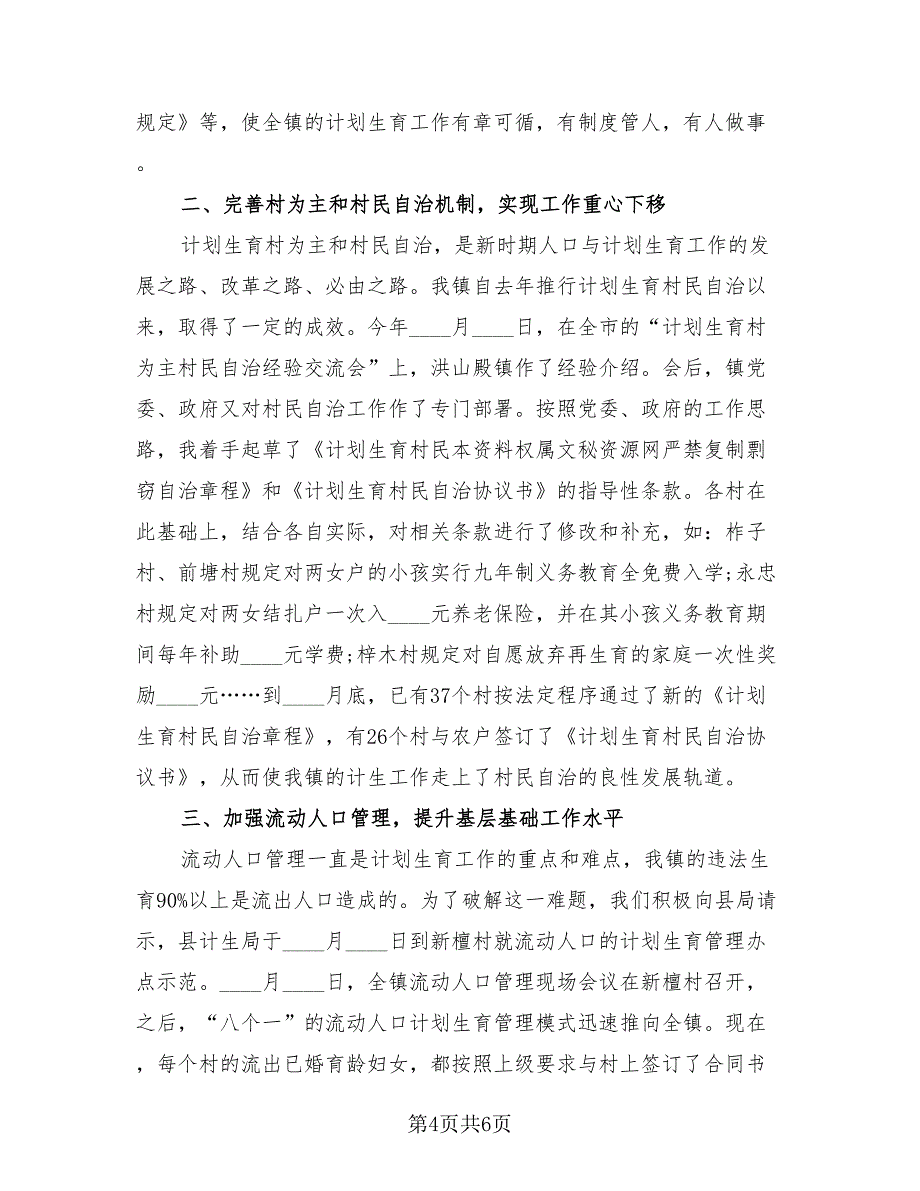 规定》等，使全镇的计划生育工作有章可循，有制度管人，有人做事
。
二、完善村为主和村民自治机制，实现工作重心下移
计划生育村为主和村民自治，是新时期人口与计划生育工作的发
展之路、改革之路、必由之路。我镇自去年推行计划生育村民自治以
来，取得了一定的成效。今年____月____日，在全市的“计划生育村
为主村民自治经验交流会”上，洪山殿镇作了经验介绍。会后，镇党
委、政府又对村民自治工作作了专门部署。按照党委、政府的工作思
路，我着手起草了《计划生育村民本资料权属文秘资源网严禁复制剽
窃自治章程》和《计划生育村民自治协议书》的指导性条款。各村在
此基础上，结合各自实际，对相关条款进行了修改和补充，如：柞子
村、前塘村规定对两女户的小孩实行九年制义务教育全免费入学;永忠
村规定对两女结扎户一次入____元养老保险，并在其小孩义务教育期
间每年补助____元学费;梓木村规定对自愿放弃再生育的家庭一次性奖
励____元……到____月底，已有37个村按法定程序通过了新的《计划
生育村民自治章程》，有26个村与农户签订了《计划生育村民自治协
议书》，从而使我镇的计生工作走上了村民自治的良性发展轨道。
三、加强流动人口管理，提升基层基础工作水平
流动人口管理一直是计划生育工作的重点和难点，我镇的违法生
育90%以上是流出人口造成的。为了破解这一难题，我们积极向县局请
示，县计生局于____月____日到新檀村就流动人口的计划生育管理办
点示范。____月____日，全镇流动人口管理现场会议在新檀村召开，
之后，“八个一”的流动人口计划生育管理模式迅速推向全镇。现在
，每个村的流出已婚育龄妇女，都按照上级要求与村上签订了合同书
第4页共6页